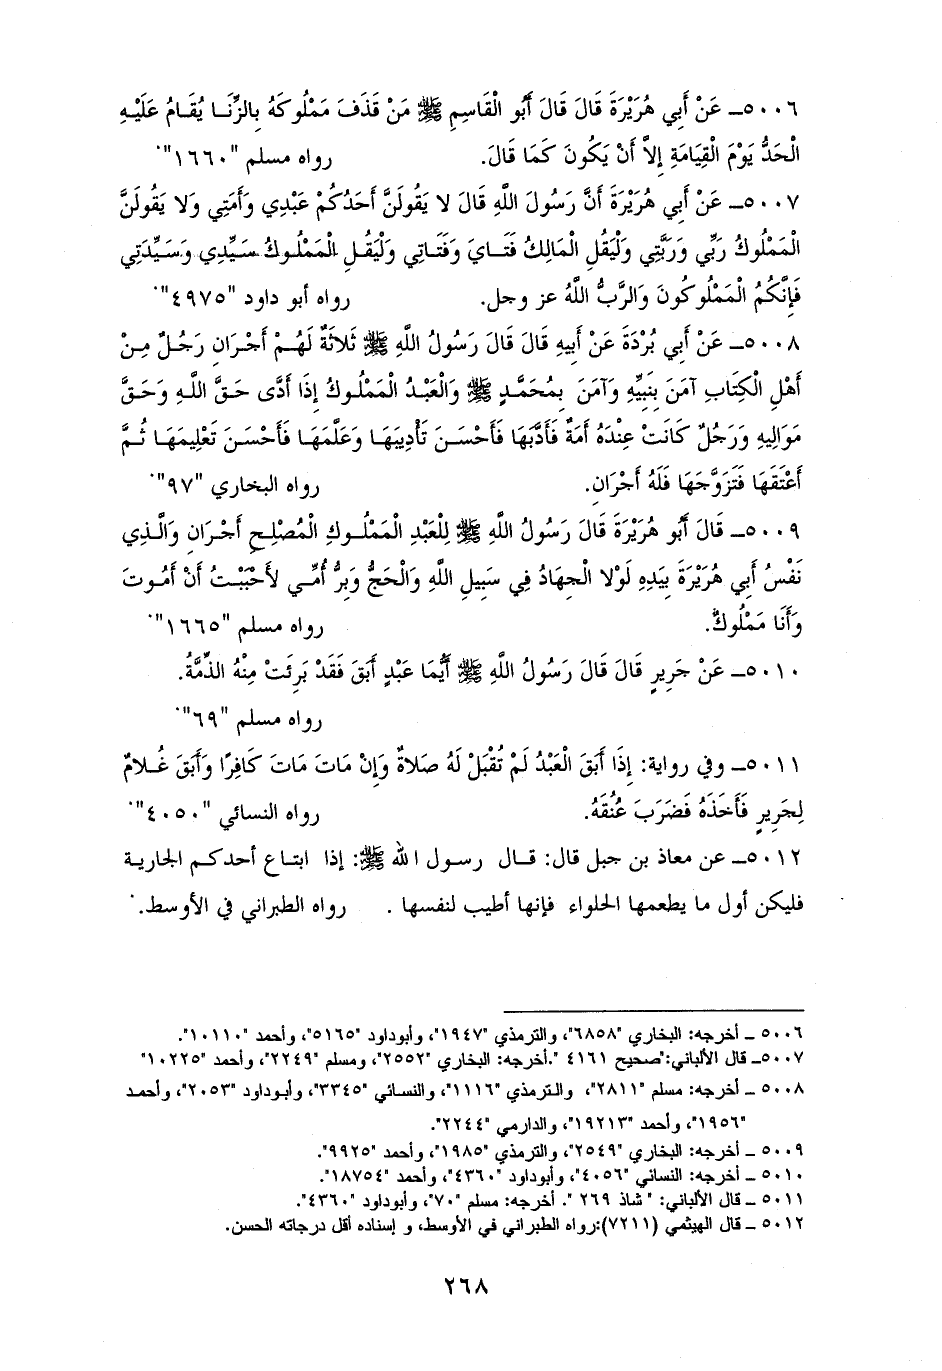 ٥٠٠٦ـ عَنْ أَبِي هُرَيْرَةَ قَالَ قَالَ أَبُو الْقَاسِمِ ﷺ مَنْ قَذَفَ مَمْلُوكَهُ بِالزِّنَا يُقَامُ عَلَيْهِ
الْحَدُّ يَوْمَ الْقِيَامَةِ إِلاَّ أَنْ يَكُونَ كَمَا قَالَ. رواه مسلم "١٦٦٠".
٥٠٠٧ـ عَنْ أَبِي هُرَيْرَةَ أَنَّ رَسُولَ اللَّهِ قَالَ لا يَقُولَنَّ أَحَدُكُمْ عَبْدِي وَأَمَتِي وَلا يَقُولَنَّ
الْمَمْلُوكُ رَبِّي وَرَبَّتِي وَلْيَقُلِ الْمَالِكُ فَتَايَ وَفَتَاتِي وَلْيَقُلِ الْمَمْلُوكُ سَيِّدِي وَسَيِّدَتِي
فَإِنَّكُمُ الْمَمْلُوكُونَ وَالرَّبُّ اللَّهُ عز وجل. رواه أبو داود "٤٩٧٥".
٥٠٠٨ـ عَنْ أَبِي بُرْدَةَ عَنْ أَبِيهِ قَالَ قَالَ رَسُولُ اللَّهِ ﷺ ثَلاثَةٌ لَهُمْ أَجْرَانِ رَجُلٌ مِنْ
أَهْلِ الْكِتَابِ آمَنَ بِنَبِيِّهِ وَآمَنَ بِمُحَمَّدٍ ﷺ وَالْعَبْدُ الْمَمْلُوكُ إِذَا أَدَّى حَقَّ اللَّهِ وَحَقَّ
مَوَالِيهِ وَرَجُلٌ كَانَتْ عِنْدَهُ أَمَةٌ فَأَدَّبَهَا فَأَحْسَنَ تَأْدِيبَهَا وَعَلَّمَهَا فَأَحْسَنَ تَعْلِيمَهَا ثُمَّ
أَعْتَقَهَا فَتَزَوَّجَهَا فَلَهُ أَجْرَانِ. رواه البخاري "٩٧".
٥٠٠٩ـ قَالَ أَبُو هُرَيْرَةَ قَالَ رَسُولُ اللَّهِ ﷺ لِلْعَبْدِ الْمَمْلُوكِ الْمُصْلِحِ أَجْرَانِ وَالَّذِي
نَفْسُ أَبِي هُرَيْرَةَ بِيَدِهِ لَوْلا الْجِهَادُ فِي سَبِيلِ اللَّهِ وَالْحَجُّ وَبِرُّ أُمِّي لأَحْبَبْتُ أَنْ أَمُوتَ
وَأَنَا مَمْلُوكٌ. رواه مسلم "١٦٦٥".
٥٠١٠ـ عَنْ جَرِيرٍ قَالَ قَالَ رَسُولُ اللَّهِ ﷺ أَيُّمَا عَبْدٍ أَبَقَ فَقَدْ بَرِئَتْ مِنْهُ الذِّمَّةُ.
رواه مسلم "٦٩".
٥٠١١ـ وفي رواية: إِذَا أَبَقَ الْعَبْدُ لَمْ تُقْبَلْ لَهُ صَلاةٌ وَإِنْ مَاتَ مَاتَ كَافِرًا وَأَبَقَ غُلامٌ
لِجَرِيرٍ فَأَخَذَهُ فَضَرَبَ عُنُقَهُ. رواه النسائي "٤٠٥٠".
٥٠١٢ـ عن معاذ بن جبل قال: قال رسول الله ﷺ: إذا ابتاع أحدكم الجارية
فليكن أول ما يطعمها الحلواء فإنها أطيب لنفسها . رواه الطبراني في الأوسط.
٥٠٠٦ ـ أخرجه: البخاري "٦٨٥٨"، والترمذي "١٩٤٧"، وأبوداود "٥١٦٥"، وأحمد "١٠١١٠".
٥٠٠٧ـ قال الألباني:"صحيح ٤١٦١ ".أخرجه: البخاري "٢٥٥٢"، ومسلم "٢٢٤٩"، وأحمد "١٠٢٢٥"
٥٠٠٨ ـ أخرجه: مسلم "٢٨١١"، والترمذي "١١١٦"، والنسائي "٣٣٤٥"، وأبوداود "٢٠٥٣"، وأحمد
"١٩٥٦"، وأحمد "١٩٢١٣"، والدارمي "٢٢٤٤".
٥٠٠٩ ـ أخرجه: البخاري "٢٥٤٩"، والترمذي "١٩٨٥"، وأحمد "٩٩٢٥".
٥٠١٠ ـ أخرجه: النسائي "٤٠٥٦"، وأبوداود "٤٣٦٠"، وأحمد "١٨٧٥٤".
٥٠١١ ـ قال الألباني: " شاذ ٢٦٩ ". أخرجه: مسلم "٧٠"، وأبوداود "٤٣٦٠".
٥٠١٢ ـ قال الهيثمي (٧٢١١):رواه الطبراني في الأوسط، و إسناده أقل درجاته الحسن.
٢٦٨